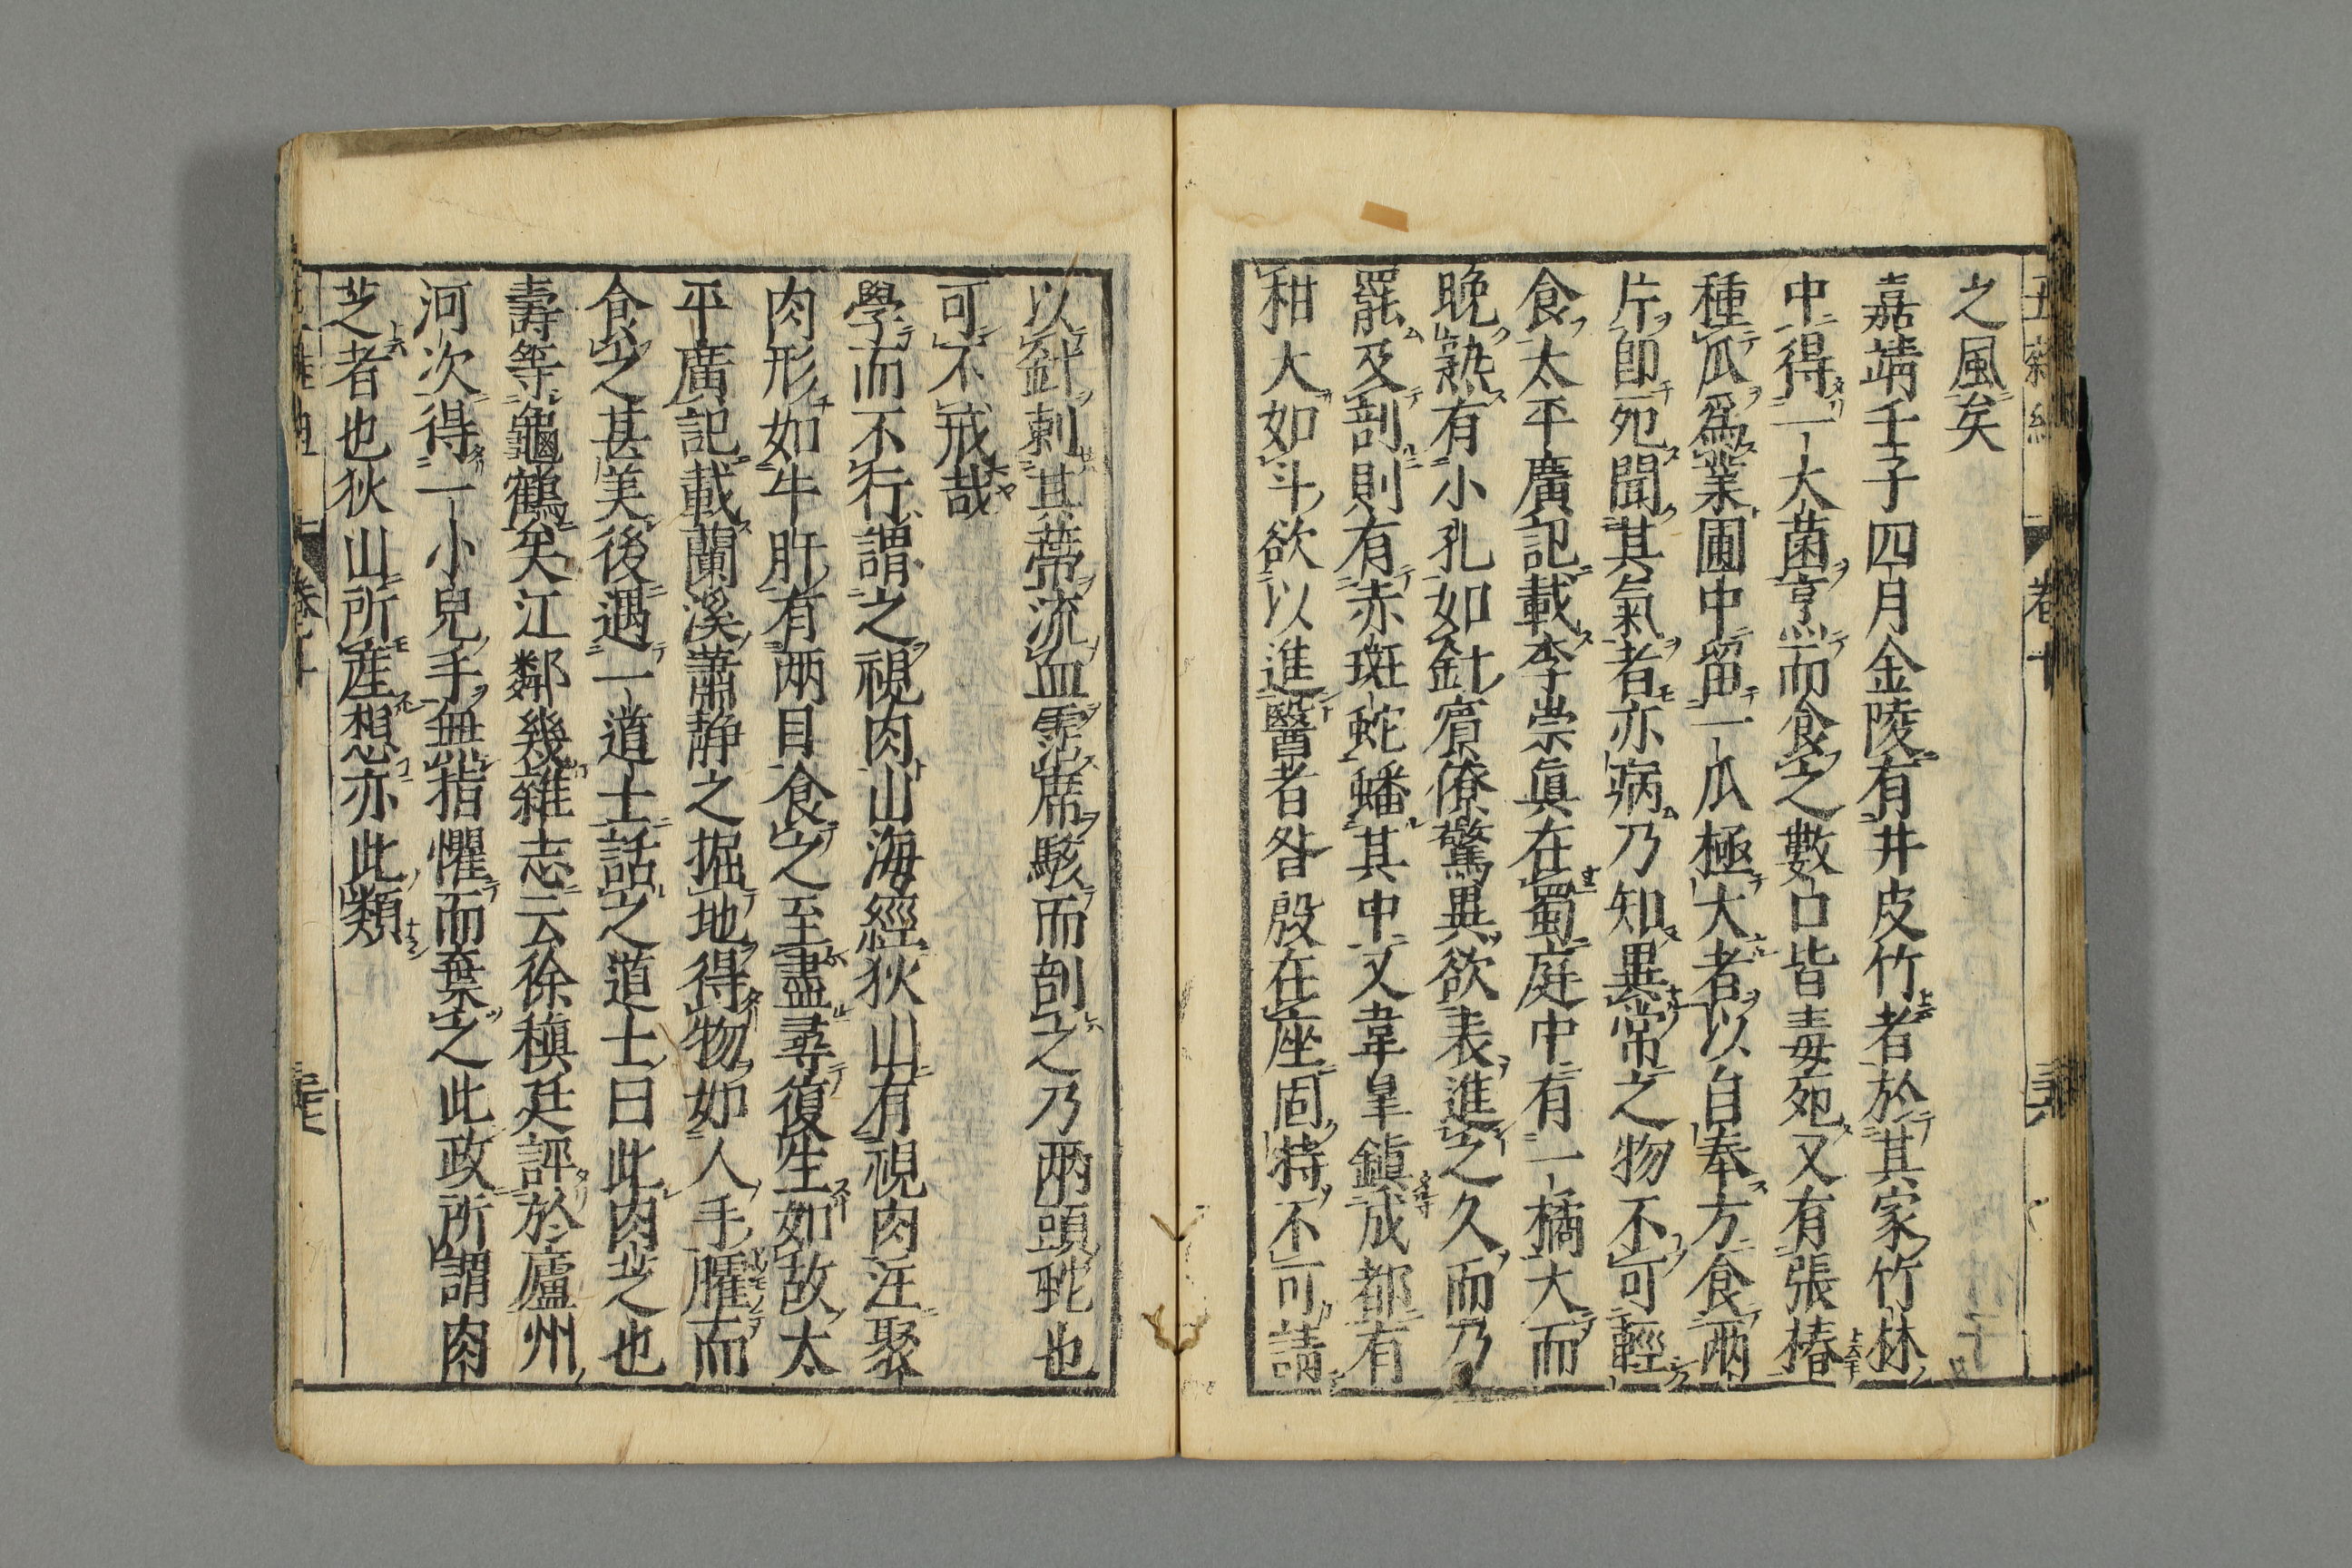 之風矣
嘉靖壬子四月金陵有井皮竹者於其家竹林
中得一大菌烹而食之數口皆毒死又有張椿
種瓜爲業圃中留一瓜極大者以自奉方食兩
片卽死聞其氣者亦病乃知異常之物不可輕
食太平廣記載李崇眞在蜀庭中有一橘大而
晚熟有小孔如針賓僚驚異欲表進之久而乃
罷及剖則有赤斑蛇蟠其中又韋皐鎭成都有
柑大如斗欲以進醫者昝殷在座固持不可請
以針刺其蒂流血霑席駭而剖之乃兩頭蛇也
可不戒哉
學而不行謂之視肉山海經狄山有視肉註聚
肉形如牛肝有兩目食之至盡尋復生如故太
平廣記載蘭溪蕭靜之掘地得物如人手臛而
食之甚美後遇一道士話之道士曰此肉芝也
壽等龜鶴矣江鄰幾雜志云徐稹廷評於廬州
河次得一小兒手無指懼而棄之此政所謂肉
芝者也狄山所產想亦此類
卷十